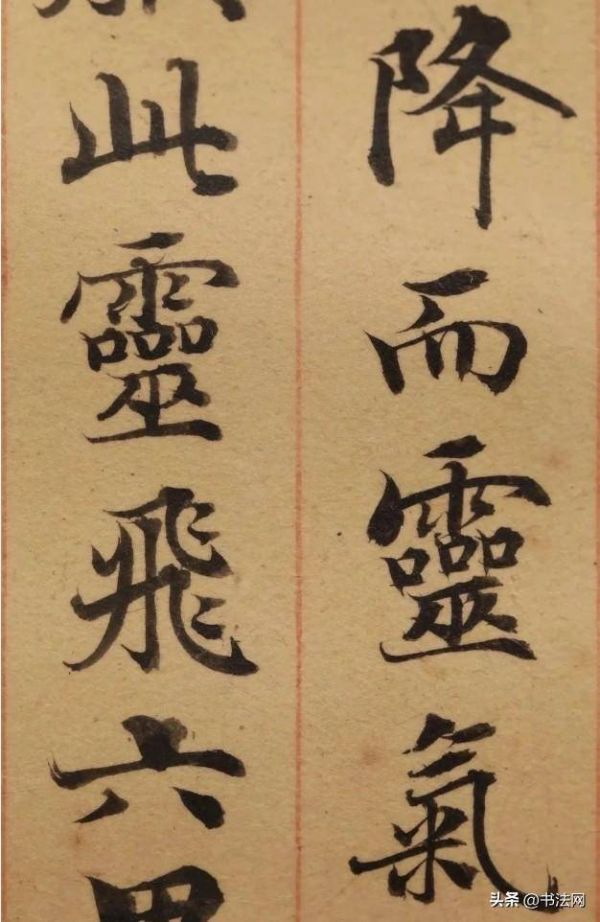 降而靈氣
此靈飛六甲
头条 @书法网